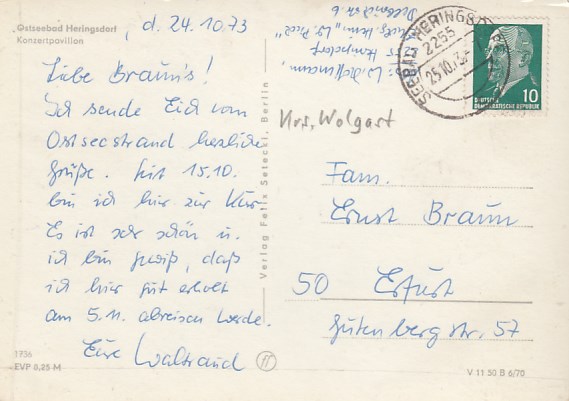 Ostseebad Heringsdorf
Konzertpavillon
, d. 24.10.73
Liebe Braun's!
Ich sende Euch vom
Ostseestrand herzliche
Grüße. Seit 15.10.
bin ich hier zur Kur
Es ist sehr schön u.
ich bin gewiß, daß
ich hier gut erholt
am 5.11. abreisen werde.
Eure Waltraud
1736
EVP 0,25 M
Verlag Felix Setecki, Berlin
Heringsdorf
Krs. Wolgast
SEEBAD HERINGSDORF
2255
25.10.73
DEUTSCHE
DEMOKRATISCHE REPUBLIK
10
Fam.
Ernst Braun
50 Erfurt
Gutenbergstr. 57
V 11 50 B 6/70